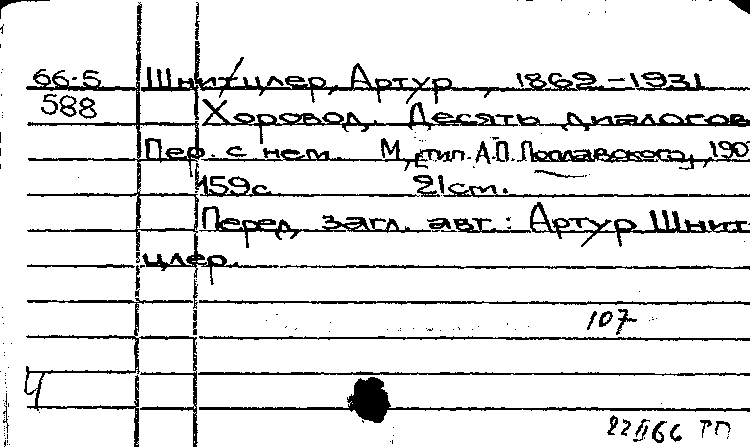 66-5 Шницлер, Артур, 1862-1931
588 Хоровод. Десять диалогов
Пер. с нем. М, тип. А.П. Поплавского, 190
159с 21см.
Перед загл. авт.: Артур Шнит-
цлер.
107
4
22 II 66 РП